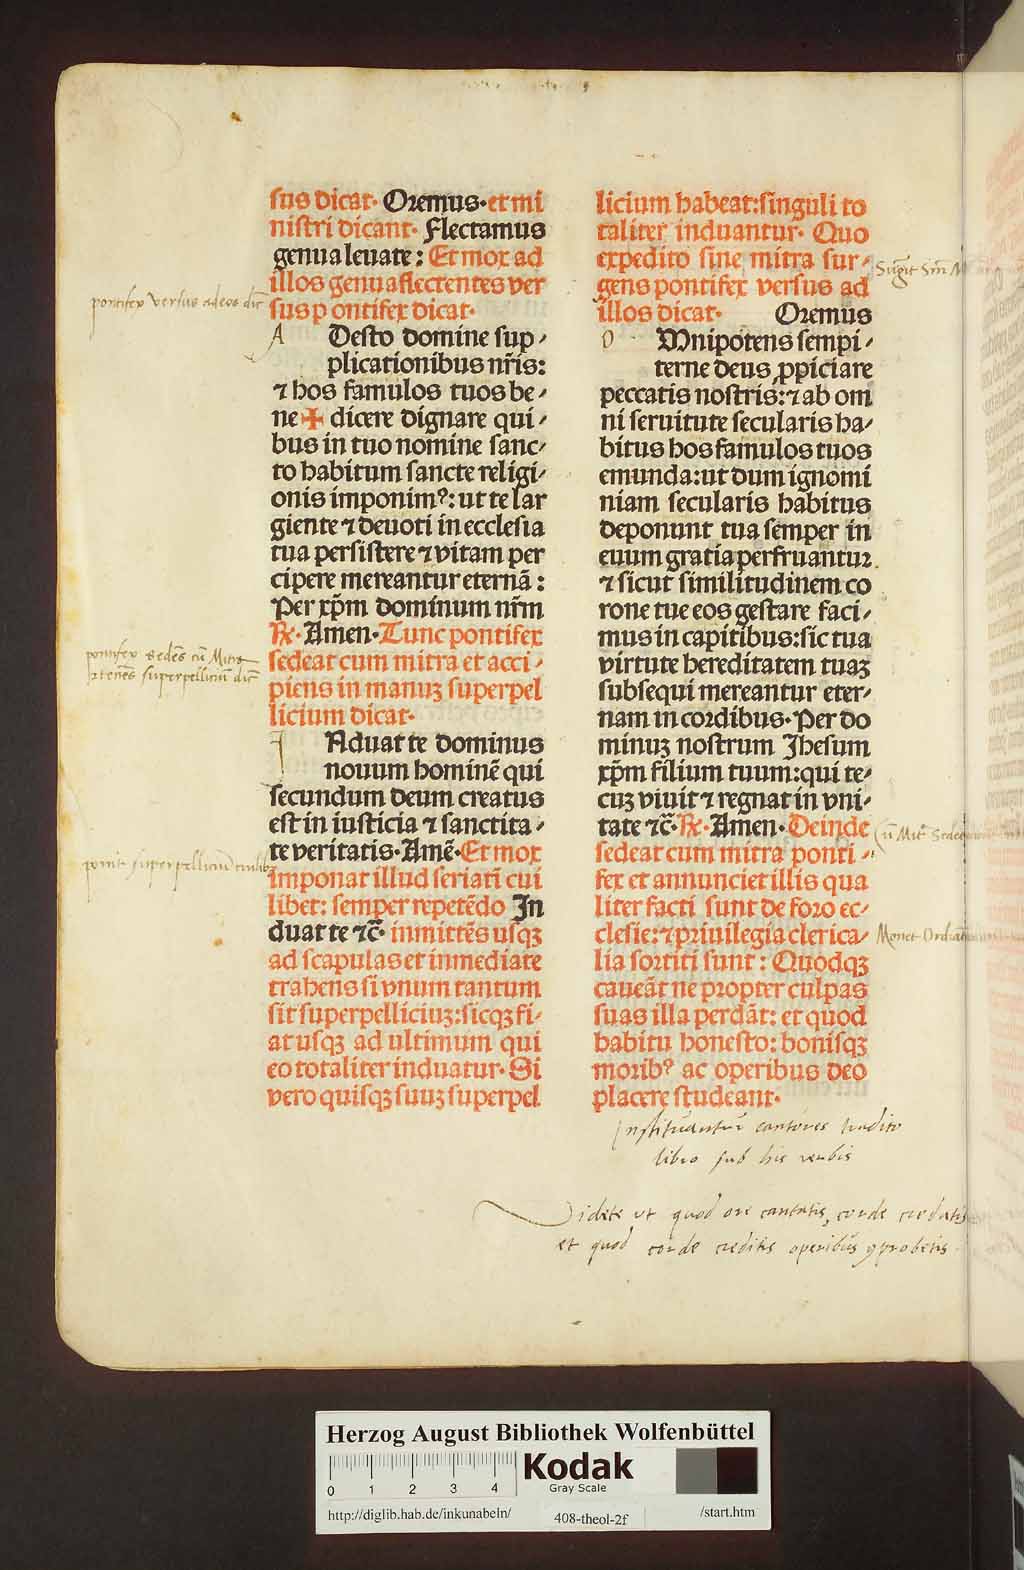 sus dicat· Oremus·et mi
nistri dicant· Flectamus
genua leuate: Et mox ad
illos genuaflectentes ver
sus p ontifex dicat·
pontifex versus adeos dic̄
A Desto domine sup⸗
plicationibus nr̄is:
⁊ hos famulos tuos be⸗
ne ✠ dicere dignare qui⸗
bus in tuo nomine sanc⸗
to habitum sancte religi⸗
onis imponimꝰ: ut te lar
giente ⁊ deuoti in ecclesia
tua persistere ⁊ vitam per
cipere mereantur eternā:
Per xp̄m dominum nr̄m
℞· Amen· Tunc pontifex
sedeat cum mitra et acci⸗
piens in manuꝫ superpel
licium dicat·
pontifex sedēs cū Mitra
⁊ tenēs superpelliciū dic̄
I Nduat te dominus
nouum hominē qui
secundum deum creatus
est in iusticia ⁊ sanctita⸗
te veritatis· Amē· Et mox
imponat illud seriatī cui
libet: semper repetēdo In
duat te ⁊c̄· inmittēs usqꝫ
ad scapulas et inmediate
trahens si vnum tantum
sit superpelliciuꝫ: sicqꝫ fi⸗
at usqꝫ ad ultimum qui
eo totaliter induatur· Si
vero quisqꝫ suuꝫ superpel
ponit superpelliciū cuilibꝫ
licium habeat: singuli to
taliter induantur· Quo
expedito sine mitra sur⸗
gens pontifex versus ad
illos dicat· Oremus
Surgit Sin M
O Mnipotens sempi⸗
terne deus ꝓpiciare
peccatis nostris: ⁊ ab om
ni seruitute secularis ha⸗
bitus hos famulos tuos
emunda: ut dum ignomi
niam secularis habitus
deponunt tua semper in
euum gratia perfruantur
⁊ sicut similitudinem co
rone tue eos gestare faci⸗
mus in capitibus: sic tua
virtute hereditatem tuaꝫ
subsequi mereantur eter⸗
nam in cordibus· Per do
minuꝫ nostrum Jhesum
xp̄m filium tuum: qui te⸗
cuꝫ viuit ⁊ regnat in vni⸗
tate ⁊c̄· ℞· Amen· Deinde
sedeat cum mitra ponti⸗
fex et annunciet illis qua
liter facti sunt de foro ec⸗
clesie: ⁊ priuilegia clerica⸗
lia sortiti sunt: Quodqꝫ
caueāt ne propter culpas
suas illa perdāt: et quod
habitu honesto: bonisqꝫ
moribꝰ ac operibus deo
placere studeant·
cū Mit̄
Monet
Instituantur cantores tradito
libro sub his verbis
Videte ut quod ore cantatis, corde credatis
et quod corde creditis operibus ꝓprobetis
Herzog August Bibliothek Wolfenbüttel
0 1 2 3 4
Kodak
Gray Scale
http://diglib.hab.de/inkunabeln/ 408-theol-2f /start.htm